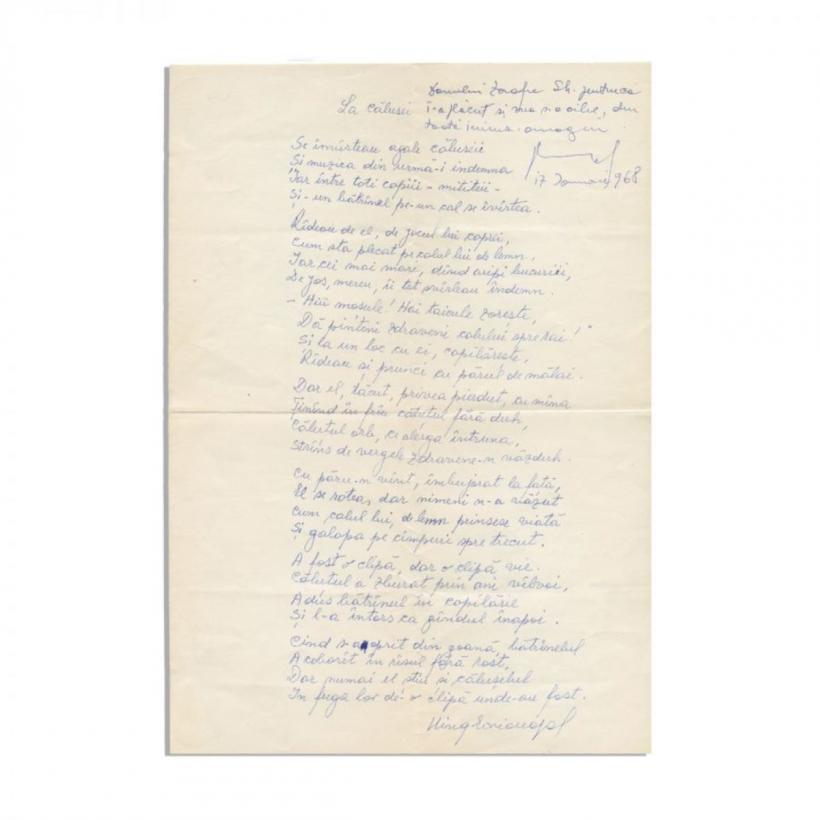 La căluseii
Domnului
Sh.
i-a plăcut și
din
toată inima omagiu
17 1968
Se învîrteau agale căluseii
Și muzica din urmă-i îndemna
Iar între toti copiii - mititeii -
Și - un bătrînel pe-un cal se învîrtea.
Rîdeau de el, de jocul lui copiii,
Cum sta plecat pe calul lui de lemn,
Iar cei mai mari, dînd aripi bucuriei,
De jos, mereu, îi tot svîrleau îndemn.
- Hiii mosule! Hai taicule zoreste,
Dă pinteni zdraveni calului spre rai!"
Si la un loc cu ei, copilăreste,
Rîdeau și pruncii cu părul de mălai.
Dar el, tăcut, privea pierdut, cu mîna
Ținînd în frîu căluțul fără duh,
Călutul orb, ce alerga întruna,
Strîns de vergele zdravene-n văzduh.
Cu păru-n vînt, îmbujorat la față,
El se rotea, dar nimeni n-a văzut
Cum calul lui, de lemn prinsese viată
Și galopa pe cîmpuri spre trecut.
A fost o clipă, dar o clipă vie.
Călutul a zburat prin ani vîlvoi,
A dus bătrînul în copilărie
Și l-a întors ca gîndul înapoi.
Cînd s-a oprit din goană, bătrînelul
A coborît în rîsul fără rost,
Dar numai el stiu si călușelul
In fuga lor de-o clipă unde-au fost.